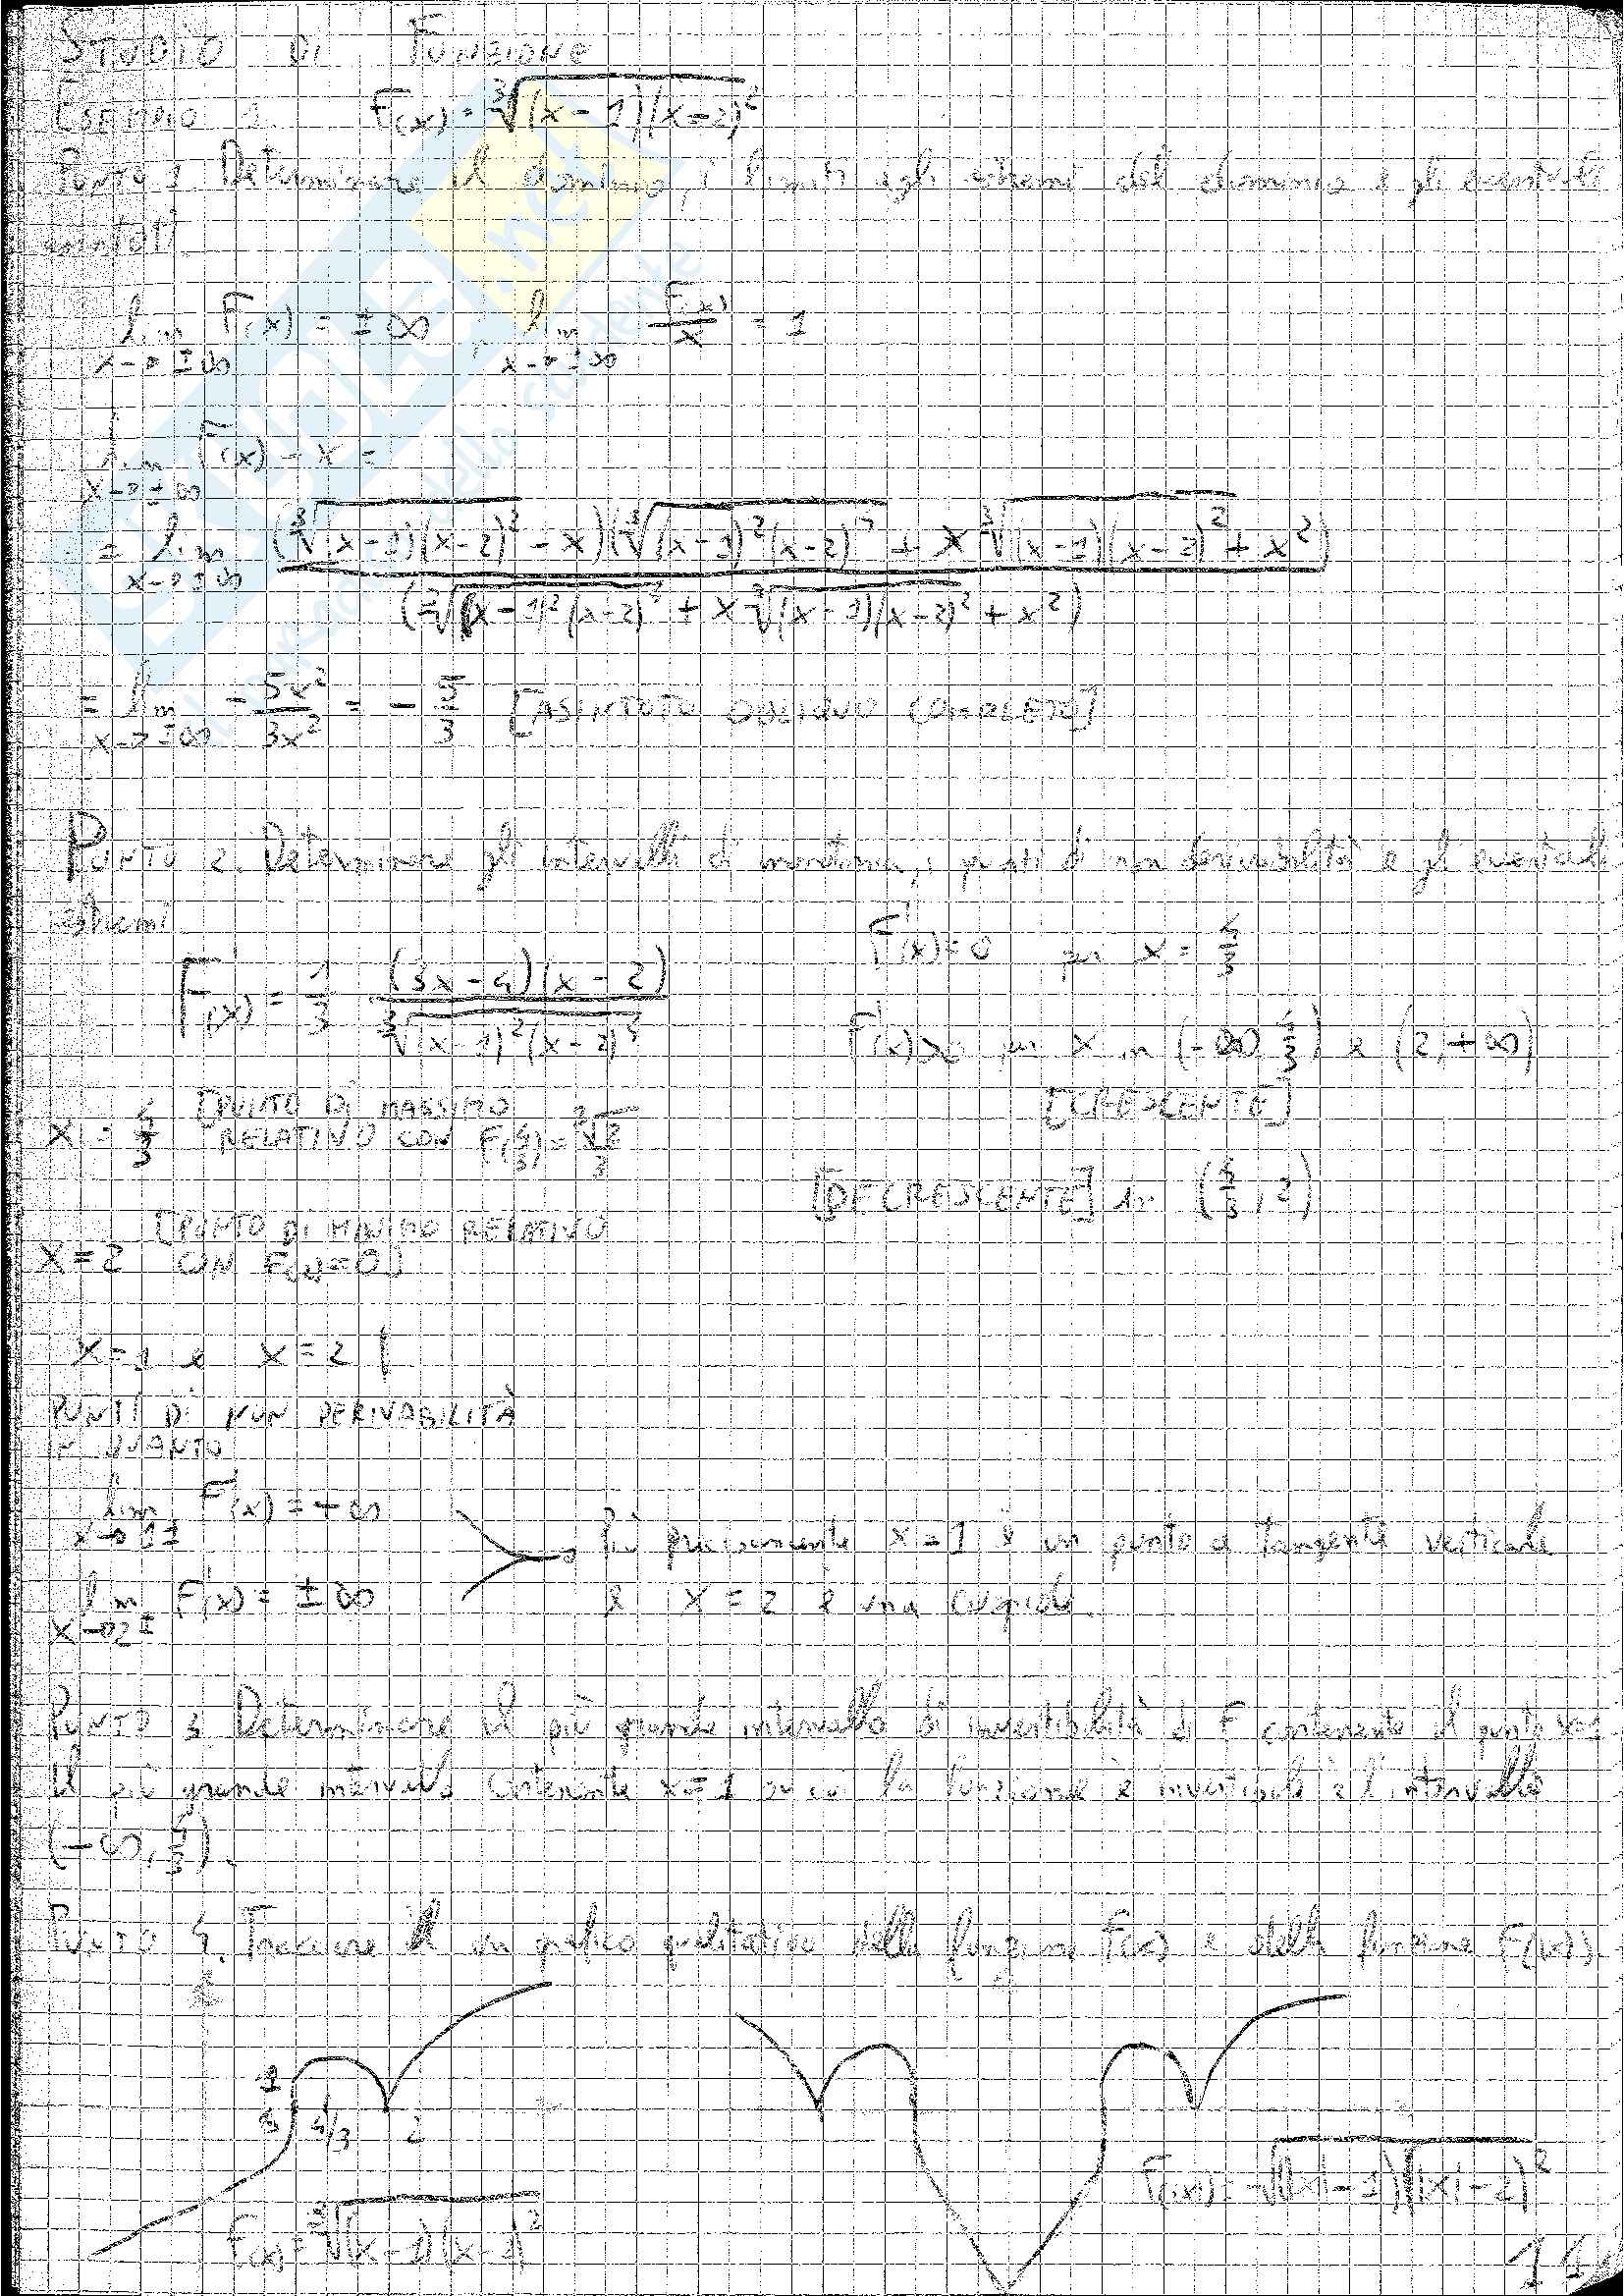 STUDIO DI FUNZIONE
ESEMPIO 1. F(x) = ∛((x-1)(x-2)²)
PUNTO 1. Determinare il dominio, i limiti agli estremi del dominio e gli eventuali
asintoti.
lim x→±∞ F(x) = ±∞, lim x→±∞ F(x)/x = 1
lim x→±∞ F(x) - x =
= lim x→±∞ (∛((x-1)(x-2)²) - x)(∛((x-1)²(x-2)⁴) + x∛((x-1)(x-2)²) + x²) / (∛((x-1)²(x-2)⁴) + x∛((x-1)(x-2)²) + x²)
= lim x→±∞ -5x²/3x² = -5/3 [ASINTOTO OBLIQUO COMPLETO]
PUNTO 2. Determinare gli intervalli di monotonia, i punti di non derivabilità e gli eventuali
estremi.
F'(x) = 0 per x = 4/3
F'(x) = 1/3 (3x-4)(x-2) / ∛((x-1)²(x-2)⁴)
F'(x)>0 per x in (-∞, 4/3) e (2, +∞)
[CRESCENTE]
x = 4/3 [PUNTO DI MASSIMO
RELATIVO CON F(4/3) = ∛4/3
[DECRESCENTE] in (4/3, 2)
[PUNTO DI MINIMO RELATIVO
x = 2 CON F(2)=0]
x=1 e x=2
PUNTI DI NON DERIVABILITÀ
IN QUANTO
lim x→1± F'(x) = +∞
Più precisamente x=1 è un punto a tangente verticale
lim x→2± F'(x) = ±∞
e x=2 è una cuspide.
PUNTO 3. Determinare il più grande intervallo di invertibilità di F contenente il punto x=1.
Il più grande intervallo contenente x=1 su cui la funzione è invertibile è l'intervallo
(-∞, 4/3).
PUNTO 4. Tracciare un grafico qualitativo della funzione F(x) e della funzione F(|x|).
1
4/3
2
F(|x|) = √((|x|-1)(|x|-2)²
F(x) = ∛((x-1)(x-2)²